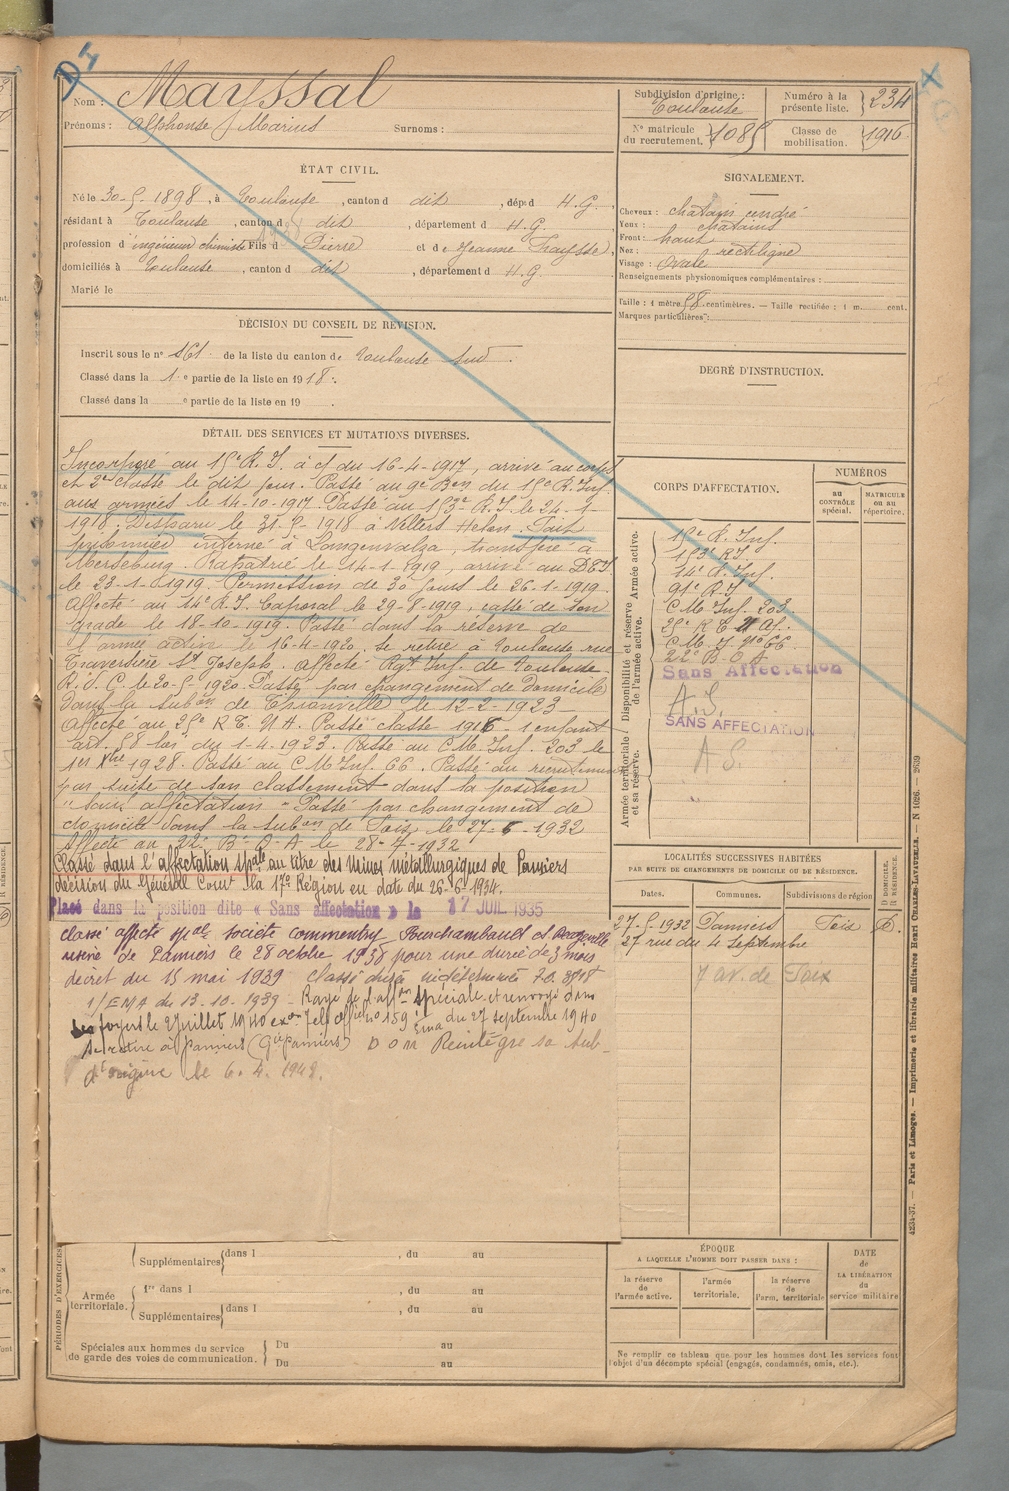 D4
Nom : Mayssal
Prénoms : Alphonse Marius Surnoms :
Subdivision d'origine : Toulouse
Numéro à la présente liste. 234
N° matricule du recrutement. 1085
Classe de mobilisation. 1916
ÉTAT CIVIL.
Né le 30-5-1898, à Toulouse, canton d dit, dép. d H.G.
résidant à Toulouse, canton d dit, département d H.G.
profession d'ingénieur chimiste Fils d Pierre et de Jeanne Fraysse,
domiciliés à Toulouse, canton d dit, département d H.G.
Marié le
SIGNALEMENT.
Cheveux : châtain cendré
Yeux : châtains
Front : haut
Nez : rectiligne
Visage : Ovale
Renseignements physionomiques complémentaires :
Taille : 1 mètre 58 centimètres. — Taille rectifiée : 1 m. cent.
Marques particulières :
DÉCISION DU CONSEIL DE RÉVISION.
Inscrit sous le n° 161 de la liste du canton de Toulouse Sud.
Classé dans la 1e partie de la liste en 1918.
Classé dans la e partie de la liste en 19 .
DEGRÉ D'INSTRUCTION.
DÉTAIL DES SERVICES ET MUTATIONS DIVERSES.
Incorporé au 15e R.I. à c/ du 16-4-1917, arrivé au corps
et 2e classe le dit jour. Passé au 9e Bon du 15e R. Inf.
aux armées le 14-10-1917. Passé au 153e R.I. le 24-1-
1918. Disparu le 31-5-1918 à Villers Helon. Fait
prisonnier interné à Langensalza, transféré à
Merseburg. Rapatrié le 14-1-1919, arrivé au DEI
le 22-1-1919. Permission de 30 jours le 26-1-1919.
Affecté au 14e R.I. Caporal le 29-8-1919, cassé de son
grade le 18-10-1919. Passé dans la réserve de
l'armée active le 16-4-1920 se retire à Toulouse rue
Traversière St Joseph. Affecté Rgt Inf. de Toulouse
R.S.C. le 20-5-1920. Passé par changement de domicile
dans la subon de Thionville le 12-2-1923
Affecté au 25e R.T.N.A. Passé classe 1916 - 1 enfant
art. 58 loi du 1-4-1923. Passé au C.M. Inf. 203 le
1er 1928. Passé au C M Inf. 66. Passé au recrutement
par suite de son classement dans la position
"sans affectation" Passé par changement de
domicile dans la subon de Foix le 27-5-1932
Affecté au 22e B.O.A le 28-7-1932
Classé dans l'affectation spale au titre des Mines métallurgiques de Pamiers
décision du Général Comt la 17me Région en date du 26-6-1934.
Placé dans la position dite « Sans affectation » le 17 JUIL 1935
Classé affecté spal société commentry Fourchambault et Decazeville
usine de Pamiers le 28 octobre 1938 pour une durée de 3 mois
décret du 15 mai 1939 Classé durée indéterminée
1/EMA du 13-10-1939 - Rayé de l'affon spéciale et renvoyé dans
ses foyers le 2 Juillet 1940 du 27 septembre 1940
Se retire à Pamiers Réintégre sa sub-
d'origine le 6.4.1942.
CORPS D'AFFECTATION.
NUMÉROS
au CONTRÔLE spécial.
MATRICULE ou au répertoire.
Armée active.
Disponibilité et réserve de l'armée active.
Armée territoriale et sa réserve.
15e R. Inf.
153e R.I.
14e R. Inf.
91e R.I
C M Inf. 203.
25e R T N Af.
C. M. I. N° 66
22e B.O.A
Sans Affectation
A.S.
SANS AFFECTATION
A S.
LOCALITÉS SUCCESSIVES HABITÉES
PAR SUITE DE CHANGEMENTS DE DOMICILE OU DE RÉSIDENCE.
Dates. Communes. Subdivisions de région
D DOMICILE. R RÉSIDENCE.
27-5-1932 Pamiers Foix D.
27 rue du 4 Septembre
7 av. de Foix
PÉRIODES D'EXERCICES
Supplémentaires dans l , du au
Armée territoriale.
1re dans l , du au
Supplémentaires dans l , du au
Spéciales aux hommes du service de garde des voies de communication.
Du au
Du au
ÉPOQUE
A LAQUELLE L'HOMME DOIT PASSER DANS :
la réserve de l'armée active.
l'armée territoriale.
la réserve de l'arm. territoriale
DATE de LA LIBÉRATION du service militaire
Ne remplir ce tableau que pour les hommes dont les services font
l'objet d'un décompte spécial (engagés, condamnés, omis, etc.).
4234-37. — Paris et Limoges. — Imprimerie et librairie militaires Henri CHARLES-LAVAUZELLE. — N 1026. — 2639